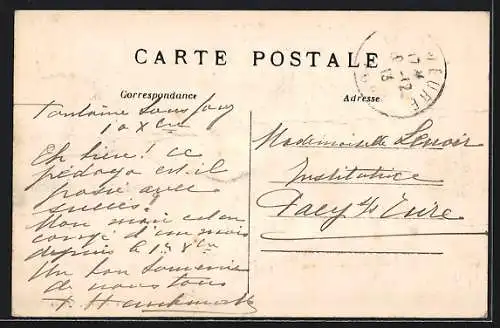 CARTE POSTALE
Correspondance
Adresse
EURE
17
6-12
13
Fontaine sous Jouy
10 Xbre
Eh bien! Ce
pédago est-il
passé avec
succès?
Mon mari est en
congé d'un mois
depuis le 1er Xbre
Un bon souvenir
de nous tous
Mademoiselle Lenoir
Institutrice
Pacy s/ Eure